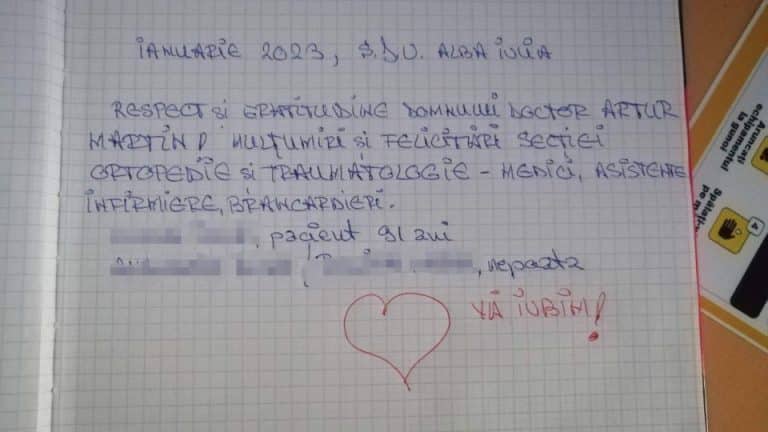 IANUARIE 2023, S.J.U. ALBA IULIA
RESPECT SI GRATITUDINE DOMNULUI DOCTOR ARTUR
MARTIN! MULTUMIRI SI FELICITĂRI SECTIEI
ORTOPEDIE SI TRAUMATOLOGIE - MEDICI, ASISTENTE
INFIRMIERE, BRANCARDIERI.
, pacient 91 ani
, nepoata
VĂ IUBIM!
Aruncați
echipamentul
la gunoi
4
Spălați
pe m